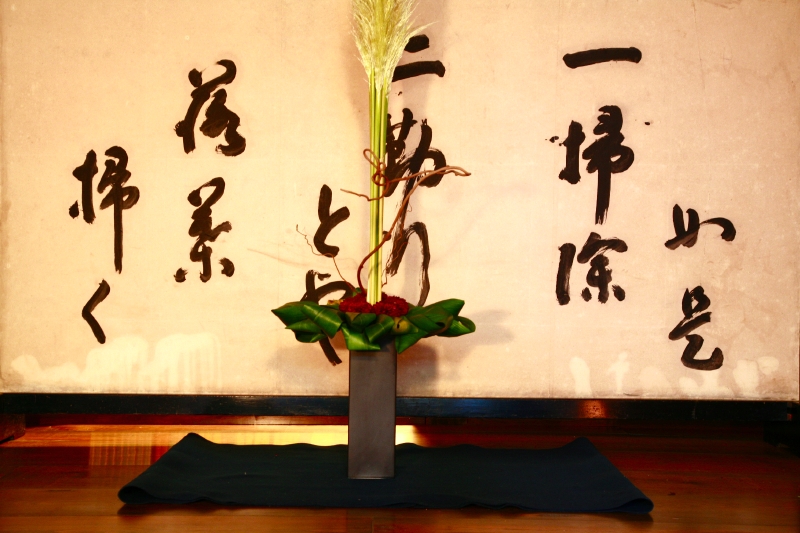 如是
一掃除
二勤行
とや
落葉
掃く